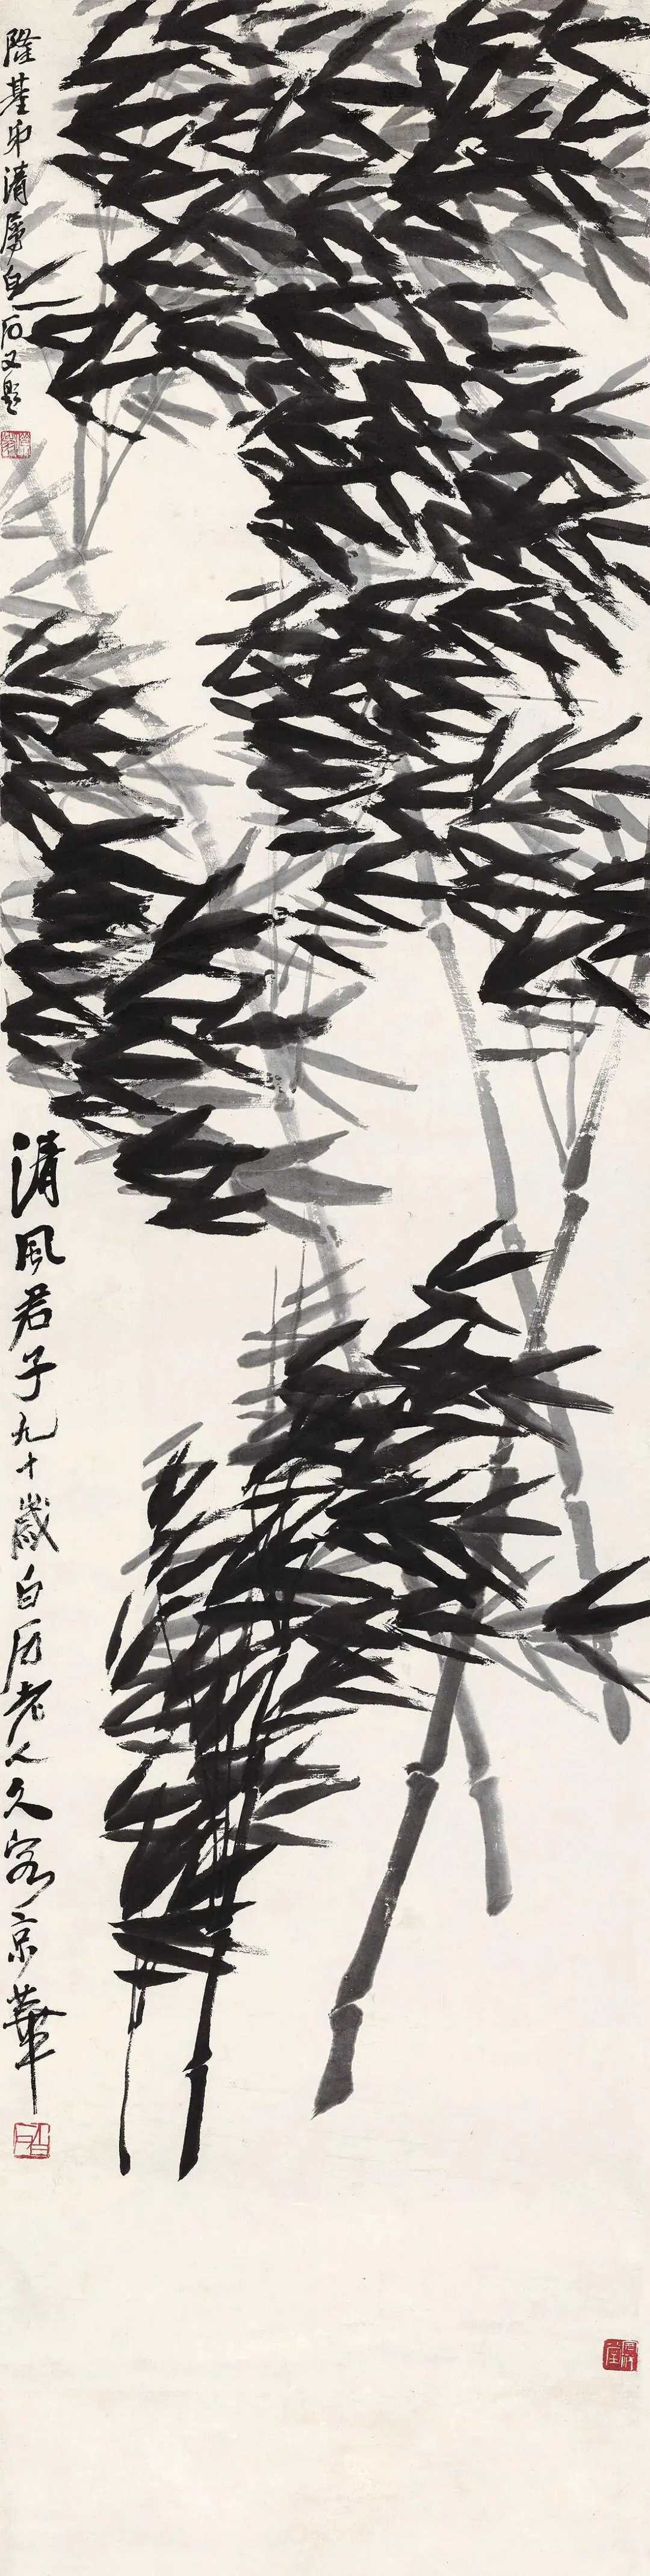 隆基弟清屬白石又題
清風君子九十歲白石老人久客京華
白石